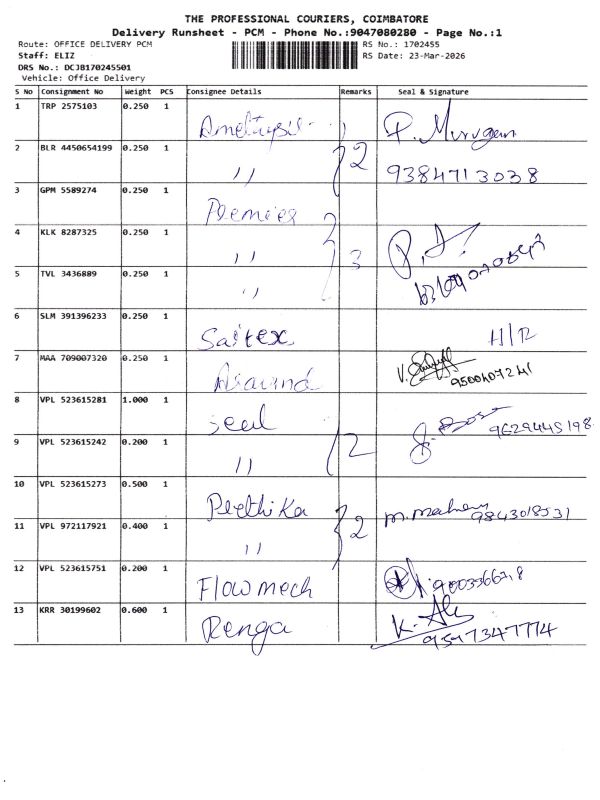 THE PROFESSIONAL COURIERS, COIMBATORE
Delivery Runsheet - PCM - Phone No.:9047080280 - Page No.:1
Route: OFFICE DELIVERY PCM RS No.: 1702455
Staff: ELIZ RS Date: 23-Mar-2026
DRS No.: DCJB170245501
Vehicle: Office Delivery
S No Consignment No Weight PCS Consignee Details Remarks Seal & Signature
1 TRP 2575103 0.250 1 P. Murugan
2 BLR 4450654199 0.250 1 〃 2 9384713038
3 GPM 5589274 0.250 1 Premier
4 KLK 8287325 0.250 1 〃 3
5 TVL 3436889 0.250 1 〃
6 SLM 391396233 0.250 1 Saitex H/R
7 MAA 709007320 0.250 1 Aravind
8 VPL 523615281 1.000 1 Seal 9629445198
9 VPL 523615242 0.200 1 〃 2
10 VPL 523615273 0.500 1 Peethika
11 VPL 972117921 0.400 1 〃 2
12 VPL 523615751 0.200 1 Flowmech
13 KRR 30199602 0.600 1 Renga